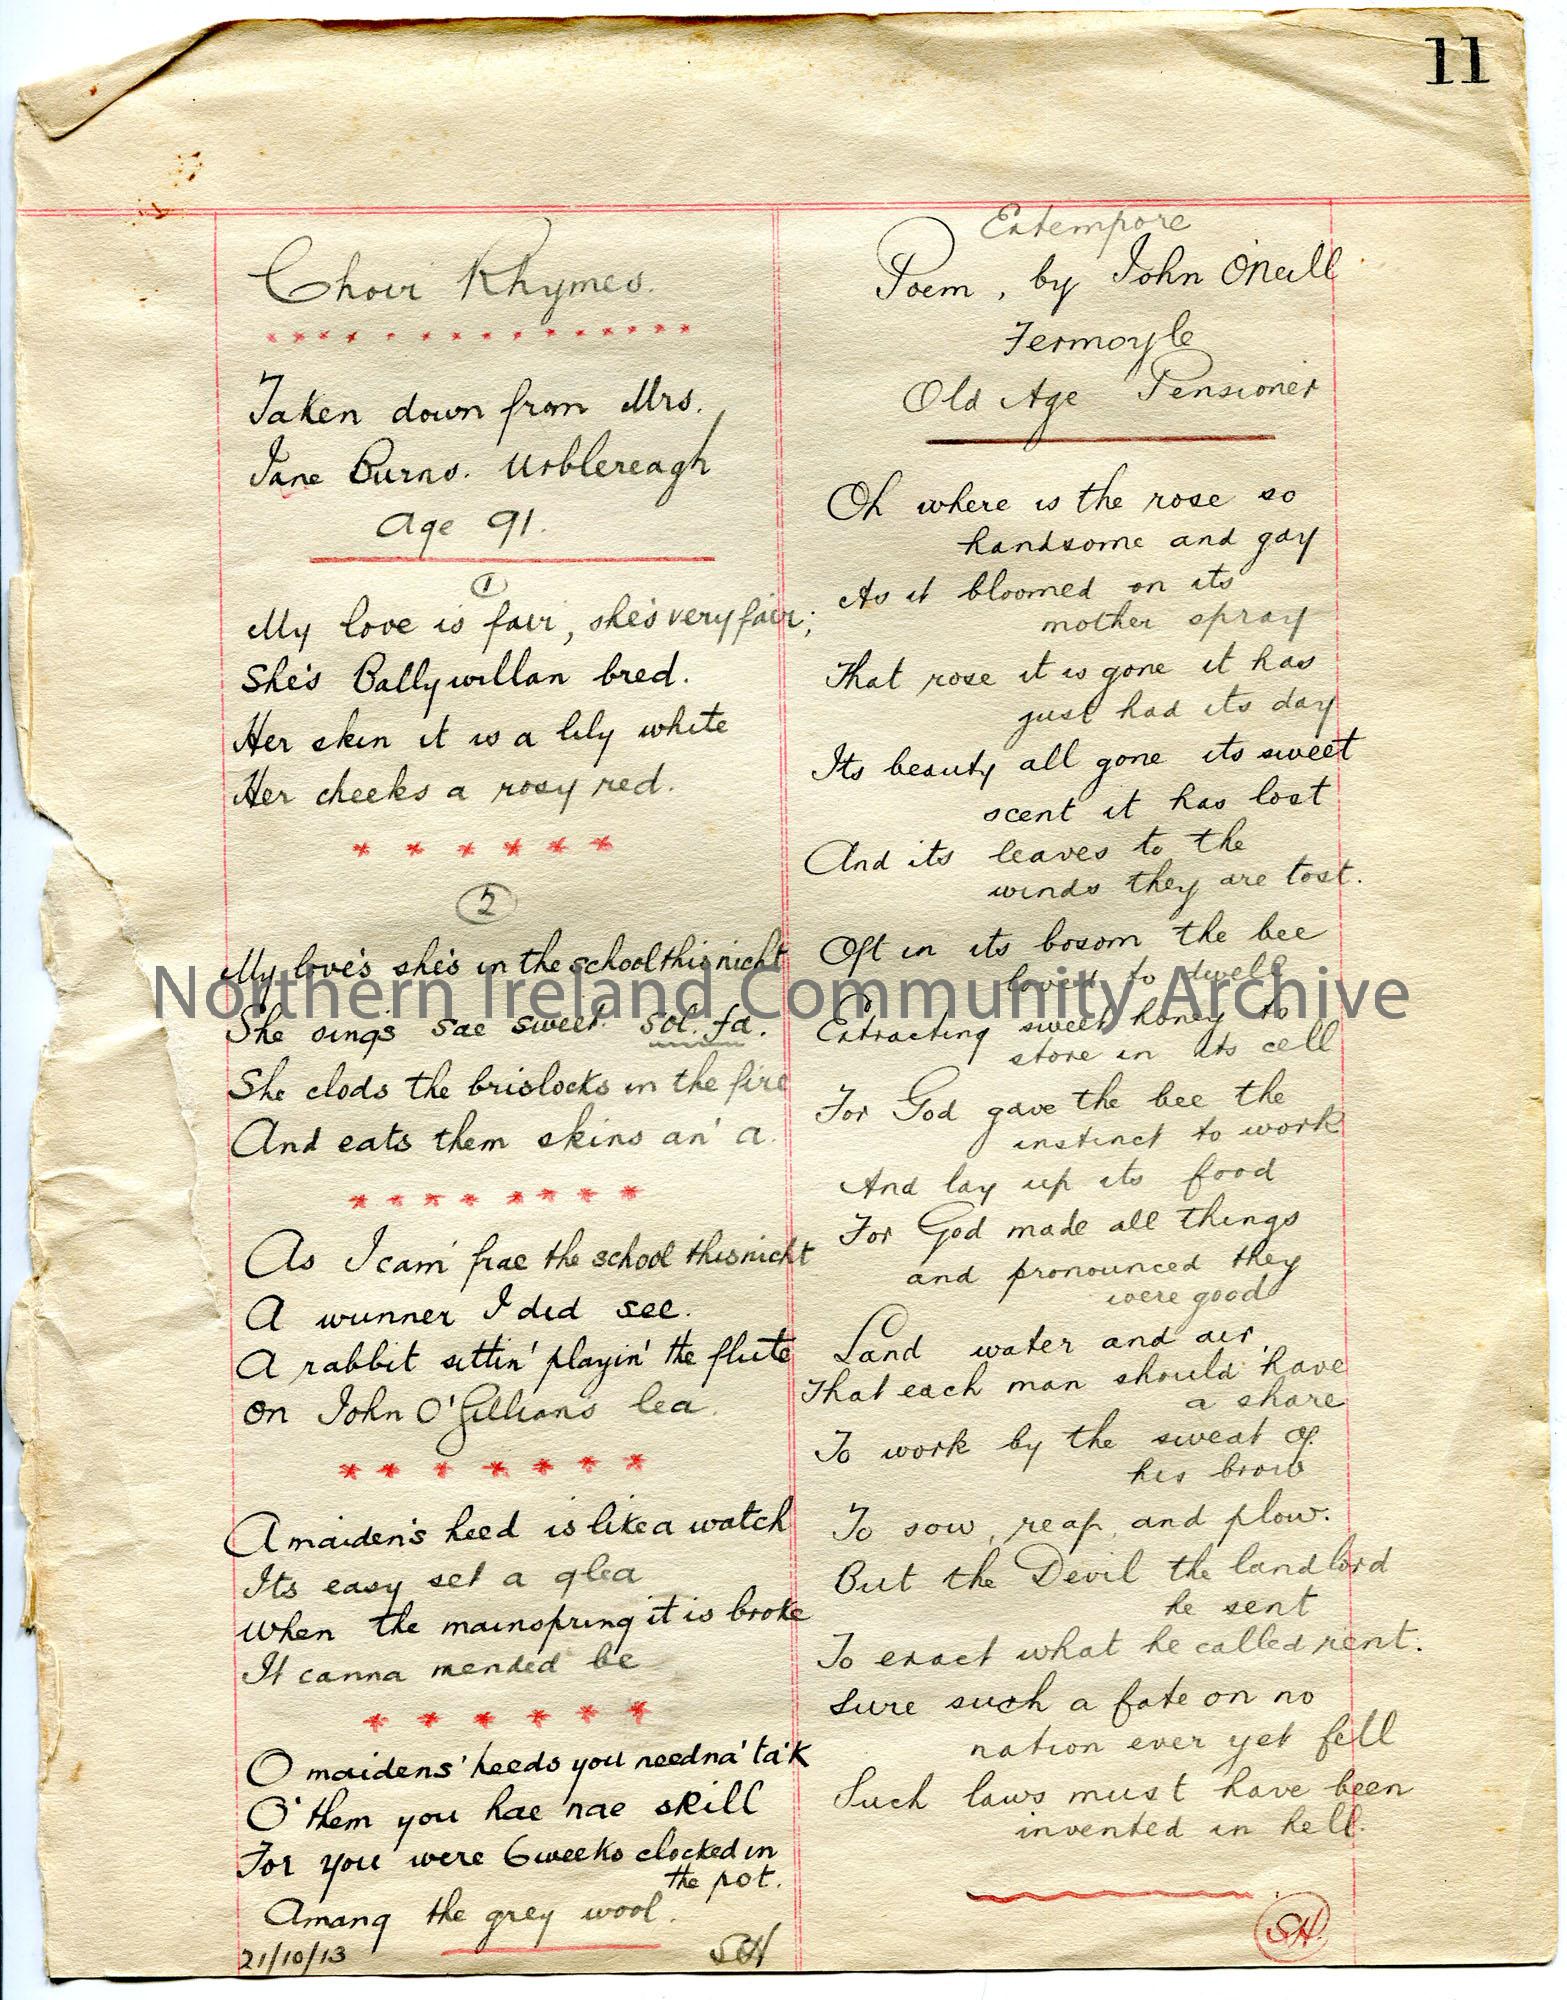 11
Choir Rhymes.
Taken down from Mrs.
Jane Burns. Urblereagh
Age 91.
1
My love is fair, she's very fair;
She's Ballywillan bred.
Her skin it is a lily white
Her cheeks a rosy red.
2
My love's she's in the school this nicht
She sings sae sweet sol. fa.
She clods the brislocks in the fire
And eats them skins an' a.
As I cam' frae the school this nicht
A wunner I did see.
A rabbit sittin' playin' the flute
On John O'Gillians lea.
A maiden's heed is like a watch
Its easy set a glea
When the mainspring it is broke
It canna mended be
O maidens' heeds you needna' ta'k
O' them you hae nae skill
For you were 6 weeks clocked in
the pot.
Amang the grey wool.
21/10/13 SH
Extempore
Poem, by John O'Neill
Fermoyle
Old Age Pensioner
Oh where is the rose so
handsome and gay
As it bloomed on its
mother spray
That rose it is gone it has
just had its day
Its beauty all gone its sweet
scent it has lost
And its leaves to the
winds they are tost.
Oft in its bosom the bee
loved to dwell
Extracting sweet honey to
store in its cell
For God gave the bee the
instinct to work
And lay up its food
For God made all things
and pronounced they
were good
Land water and air,
That each man should have
a share
To work by the sweat of
his brow
To sow, reap, and plow.
But the Devil the landlord
he sent
To exact what he called rent.
Sure such a fate on no
nation ever yet fell
Such laws must have been
invented in hell.
SH.
Northern Ireland Community Archive